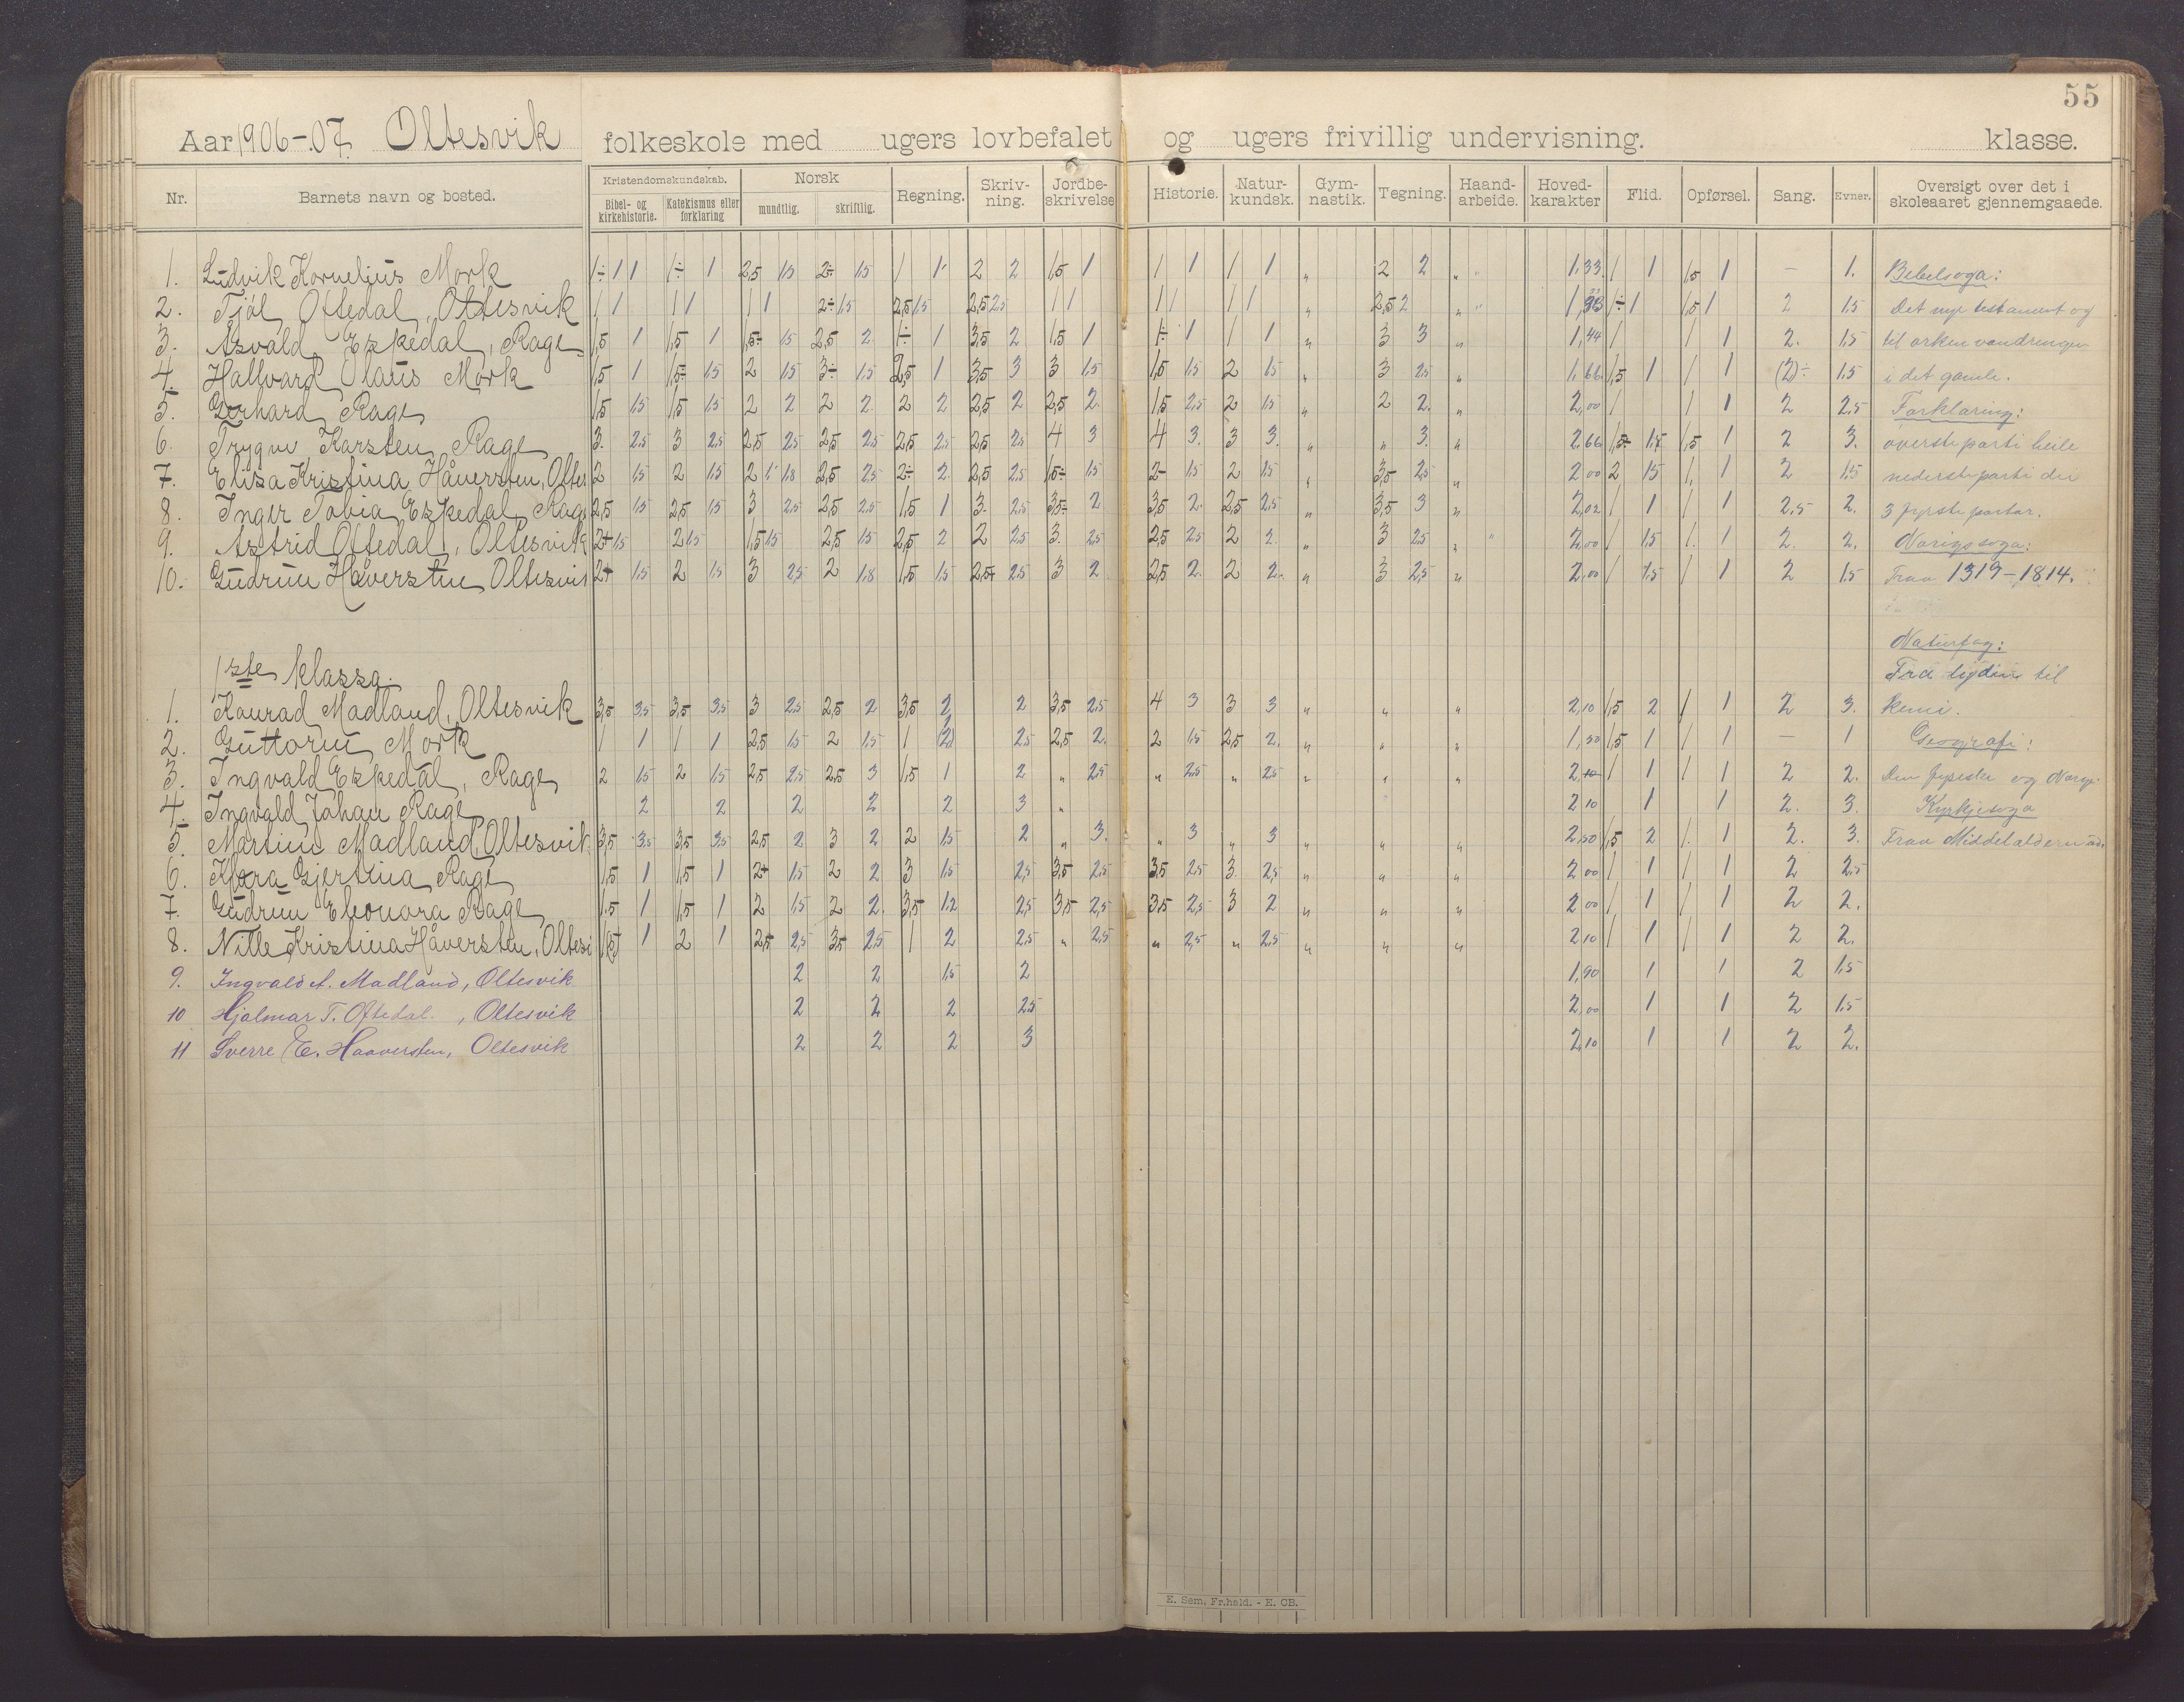 55
Aar 1906-07. Oltesvik folkeskole med ugers lovbefalet og ugers frivillig undervisning. klasse.
Nr. Barnets navn og bosted. Kristendomskundskab. Bibel- og kirkehistorie. Katekismus eller forklaring Norsk mundtlig. skriftlig. Regning. Skriv-ning. Jordbe-skrivelse Historie. Natur-kundsk. Gym-nastik. Tegning. Haand-arbeide. Hoved-karakter Flid. Opførsel. Sang. Evner. Oversigt over det i skoleaaret gjennemgaaede.
1. Ludvik Kornelius Mork 1÷ 1 1 1÷ 1 2,5 1,5 2÷ 1,5 1 1 2 2 1,5 1 1 1 1 1 " 2 2 " " 1,33 1 1 1,5 1 — 1. Bibelsoga:
2. Tjøl Oftedal, Oltesvik 1 1 1 1 1 1 2÷ 1,5 2,5 1,5 2,5 2,5 1 1 1 1 1 1 " 2,5 2 " " 1÷ 1 1,5 1 2 1,5 Det nye testament og
3. Asvald Espedal, Rage 1,5 1 1,5 1 1,5÷ 1,5 2,5 2 1÷ 1 3,5 2 1,5 1 1÷ 1 1 1 " 3 3 " 1,44 1 1 1 2. 1,5 til orkenvandringen
4. Hallvard Olaus Mork 1,5 1 1,5÷ 1,5 2 1,5 3÷ 1,5 2,5 1 3,5 3 3 1,5 1,5 1,5 2 1,5 " 3 2,5 " 1,66 1,5 1 1 1 (2)÷ 1,5 i det gamle.
5. Gerhard Rage 1,5 1,5 1,5 1,5 2 2 2 2 2 2 2,5 2 2,5 2 1,5 2,5 2 1,5 " 2 2. " 2,00 1 1 1 2 2,5 Forklaring:
6. Trygve Karsten Rage 3. 2,5 3 2,5 2,5 2,5 2,5 2,5 2,5 2,5 2,5 2,5 4 3 4 3. 3 3. " " 3. " 2,66 1,5÷ 1,5 1,5 1 2 3. øverste parti heile
7. Elisa Kristina Håversten, Oltes 2 1,5 2 1,5 2 1,8 2,5 2,5 2÷ 2 2,5 2,5 1,5÷ 1,5 2÷ 1,5 2 1,5 " 3,5 2,5 " 2,00 2 1,5 1 1 2 1,5 nederste parti dei
8. Inger Tobia Espedal, Rage 2,5 1,5 2,5 1,5 3 2,5 2,5 2,5 1,5 1 3. 2,5 3,5÷ 2 3,5 2. 2,5 2,5 " 3,5 3 " 2,02 1 1 1 1 2,5 2. 3 fyrste partar.
9. Astrid Oftedal, Oltesvik 2+ 1,5 2 1,5 1,5 1,5 2,5 1,5 2,5 2 2 2,5 3. 2,5 2,5 2,5 2 2. " 3 2,5 " " 2,00 1 1,5 1 1 2. 2. Norigssoga:
10. Gudrun Håversten Oltesvik 2+ 1,5 2 1,5 3 2,5 2 1,8 1,5 1,5 2,5+ 2,5 3 2 2,5 2. 2 2. " 3 2,5 " 2,00 1 1,5 1 1 2 1,5 Fraa 1319-1814.
Naturfag:
1ste klassa. til
1. Konrad Madland, Oltesvik 3,5 3,5 3,5 3,5 3 2,5 2,5 2 3,5 2 2 3,5 2,5 4 3 3 3 " " " 2,10 1,5 2 1 1 2 3. kemi.
2. Guttorm Mork 1 1 1 1 2,5 1,5 2 1,5 1 (2) 2,5 2,5 2. 2 1,5 2,5 2. " " " 1,50 1,5 1 1 1 — 1 Geografi:
3. Ingvald Espedal, Rage 2 1,5 2 1,5 2,5 2,5 2,5 3 1,5 1 2 " 2,5 " 2,5 " 2,5 " " " 2,10 1 1 1 1 2 2. Den fysiske og Norge.
4. Ingvald Johan Rage 2 2 2 2 2 3 " 2,10 1 1 2. 3. Kyrkjesoga
5. Martin Madland, Oltesvik 3,5 3,5 3,5 3,5 2,5 2 3 2 2 1,5 2 " 3. " 3 " 3 " " " 2,50 1,5 2 1 1 2. 3. Fraa Middelalderen
6. Klara Gjertina Rage 1,5 1 1,5 1 2+ 1,5 2 2 3 1,5 2,5 3,5 2,5 3,5 2,5 3 2,5 " " " 2,00 1 1 1 1 2 2,5
7. Gudrun Eleonora Rage 1,5 1 1,5 1 2 1,5 2 2 3,5 1,2 2,5 3,5 2,5 3,5 2,5 3 2 " " " 2,00 1 1 1 1 2 2.
8. Nille Kristina Håversten, Oltesi 1(5) 1 2 1 2,5 2,5 3,5 2,5 1 2 2,5 " 2,5 " 2,5 " 2,5 " " " 2,10 1 1 1 1 2 2.
9. Ingvald A. Madland, Oltesvik 2 2 1,5 2 1,90 1 1 2 1,5
10 Hjalmar T. Oftedal, Oltesvik 2 2 2 2,5 2,00 1 1 2 1,5
11 Sverre E. Haaversten, Oltesvik 2 2 2 3 2,10 1 1 2 2.
E. Sem, Fr.hald. - E. CB.